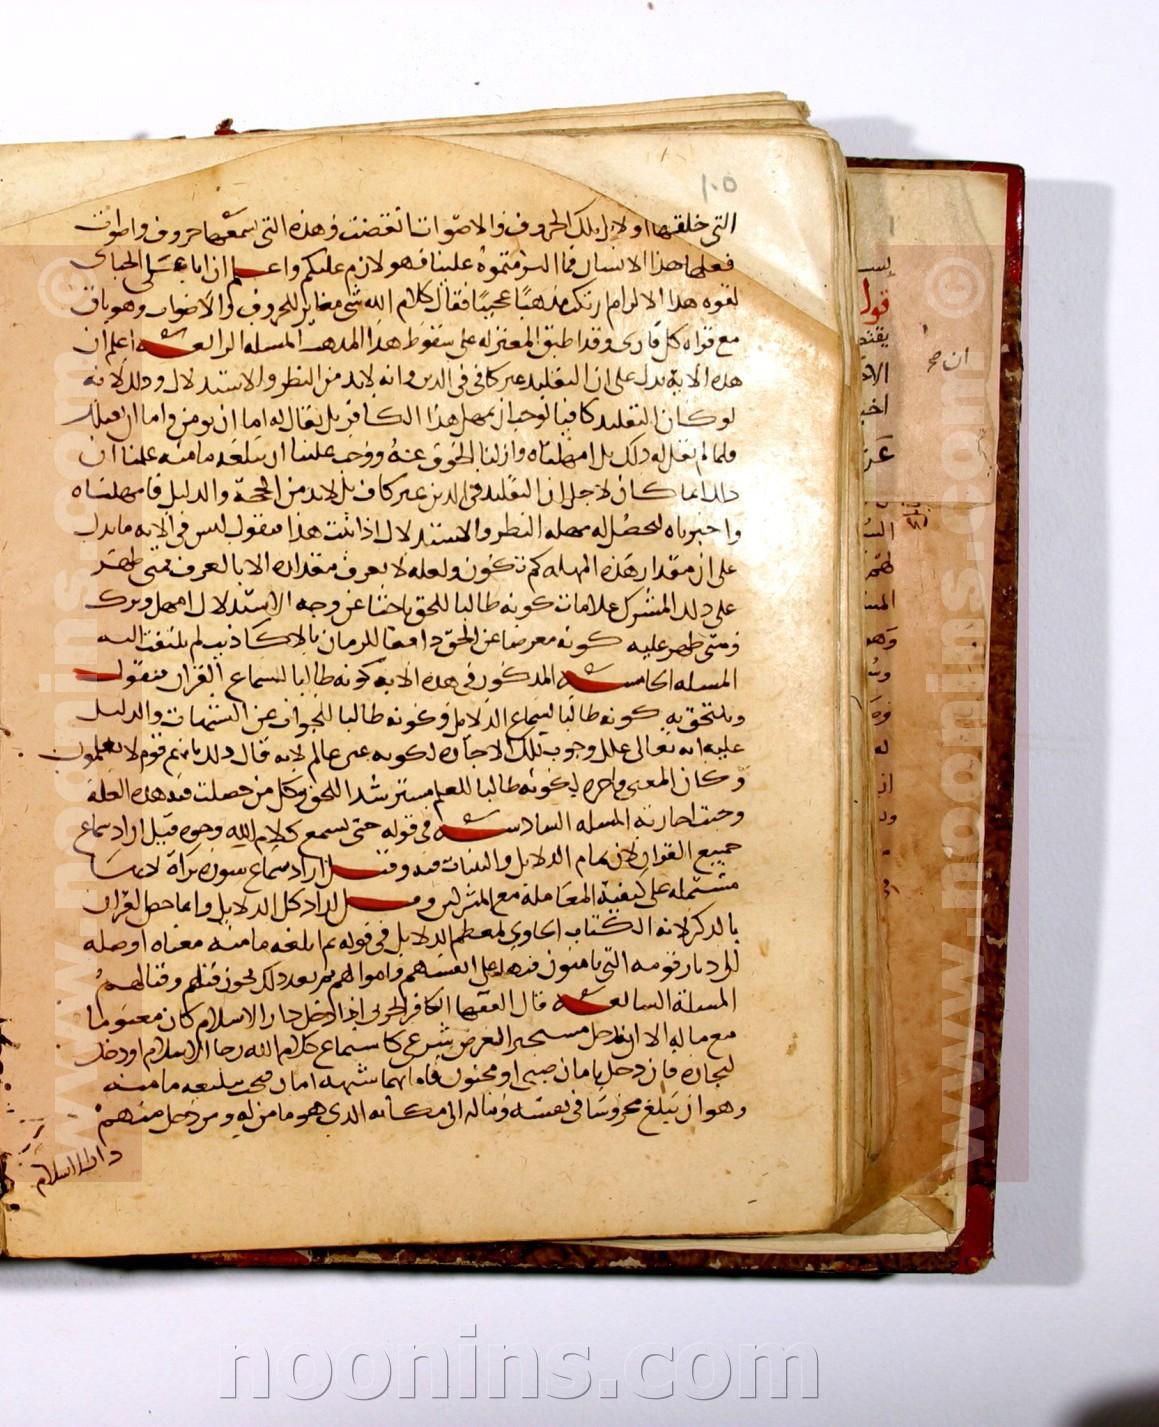 ١٠٥
التي خلقها اولا لان تلك الحروف والاصوات انقضت وهذه التي نسمعها حروف واصوات
فعلها هذا الانسان فما الزمتموه علينا فهو لازم عليكم واعلم ان ابا علي الجباي
لقوه هذا الالزام ارتكب مذهبا عجيبا فقال كلام الله شي مغاير للحروف والاصوات وهو باق
مع قراه كل قارى وقد اطبق المعتزله على سقوط هذا المذهب المسله الرابعه اعلم ان
هذه الاية تدل على ان التقليد غير كافي في الدين وانه لابد من النظر والاستدلال وذلك لانه
لو كان التقليد كافيا لوجب ان يمهل هذا الكافر بل يقال له اما ان تومن واما ان نقتلك
فلما لم نقل له ذلك بل امهلناه وازلنا الخوف عنه ووجب علينا ان نبلغه مامنه علمنا ان
ذلك انما كان لاجل ان التقليد في الدين غير كاف بل لابد من الحجة والدليل فامهلناه
واخرناه ليحصل له مهله النظر والاستدلال اذا ثبت هذا فنقول ليس في الايه ما يدل
على ان مقدار هذه المهله كم تكون ولعله لا يعرف مقداره الا بالعرف فمتى ظهر
على ذلك المشرك علامات كونه طالبا للحق باحثا عن وجه الاستدلال امهل وترك
ومتى ظهر عليه كونه معرضا عن الحق دافعا للزمان بالاكاذيب لم يلتفت اليه
المسله الخامسه المذكور في هذه الاية كونه طالبا لسماع القران فنقول
ويلتحق به كونه طالبا لسماع الدلايل وكونه طالبا للجواب عن الشبهات والدليل
عليه انه تعالى علل وجوب تلك الاجاره لكونه غير عالم لانه قال ذلك بانهم قوم لا يعلمون
وكان المعنى فاجره لكونه طالبا للعلم مسترشدا للحق وكل من حصلت فيه هذه العلة
وجبت اجارته المسله السادسه في قوله حتى يسمع كلام الله وجوه قيل اراد سماع
جميع القران لان تمام الدلايل والبينات فيه وقيل اراد سماع سوره براة لانها
مشتمله على كيفية المعاملة مع المشركين وقيل اراد كل الدلايل وانما خص القران
بالذكر لانه الكتاب الحاوي لمعظم الدلايل في قوله ثم ابلغه مامنه معناه اوصله
الى ديار قومه التي يامنون فيها على انفسهم واموالهم ثم بعد ذلك يجوز قتلهم وقتالهم
المسلة السابعه قال الفقها الكافر الحربي اذا دخل دار الاسلام كان مغنوما
مع ماله الا ان يدخل مستجيرا لغرض شرعي كاستماع كلام الله رجا الاسلام او دخل
لتجاره فان دخل بامان صبي او مجنون فامانهما شبهه امان فيجب تبليغه مامنه
وهو ان يبلغ محروسا في نفسه وماله الى مكانه الذي هو مامن له ومن دخل منهم
دار الاسلام
قول
ان صح